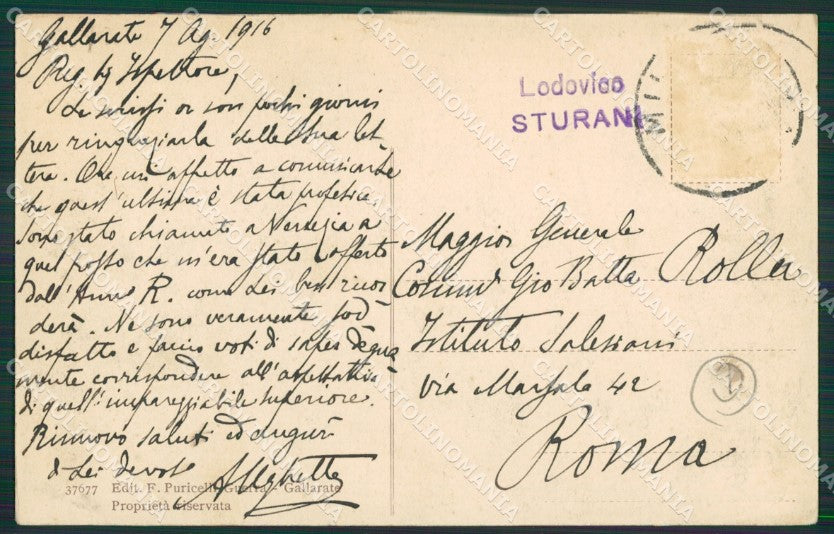 Gallarate 7 Ag. 1916
Preg. Ispettore,
Le scrissi or son pochi giorni
per ringraziarla della Sua let-
tera. Ora mi affretto a comunicarle
che quest'ultima è stata profetica.
Sono stato chiamato a Venezia a
quel posto che m'era stato offerto
dall'Amm. R. come Lei ben ricor
derà. Ne sono veramente sod
disfatto e faccio voti di saper degna
mente corrispondere all'aspettativa
di quell'impareggiabile Superiore.
Rinnovo saluti ed auguri
di Lei devoto
37677 Edit. F. Puricelli-Guerra - Gallarate
Proprietà riservata
Lodovico
STURANI
MIL
Maggior Generale
Comm. Gio Batta Rolla
Istituto Salesiani
Via Marsala 42
Roma
CARTOLINOMANIA